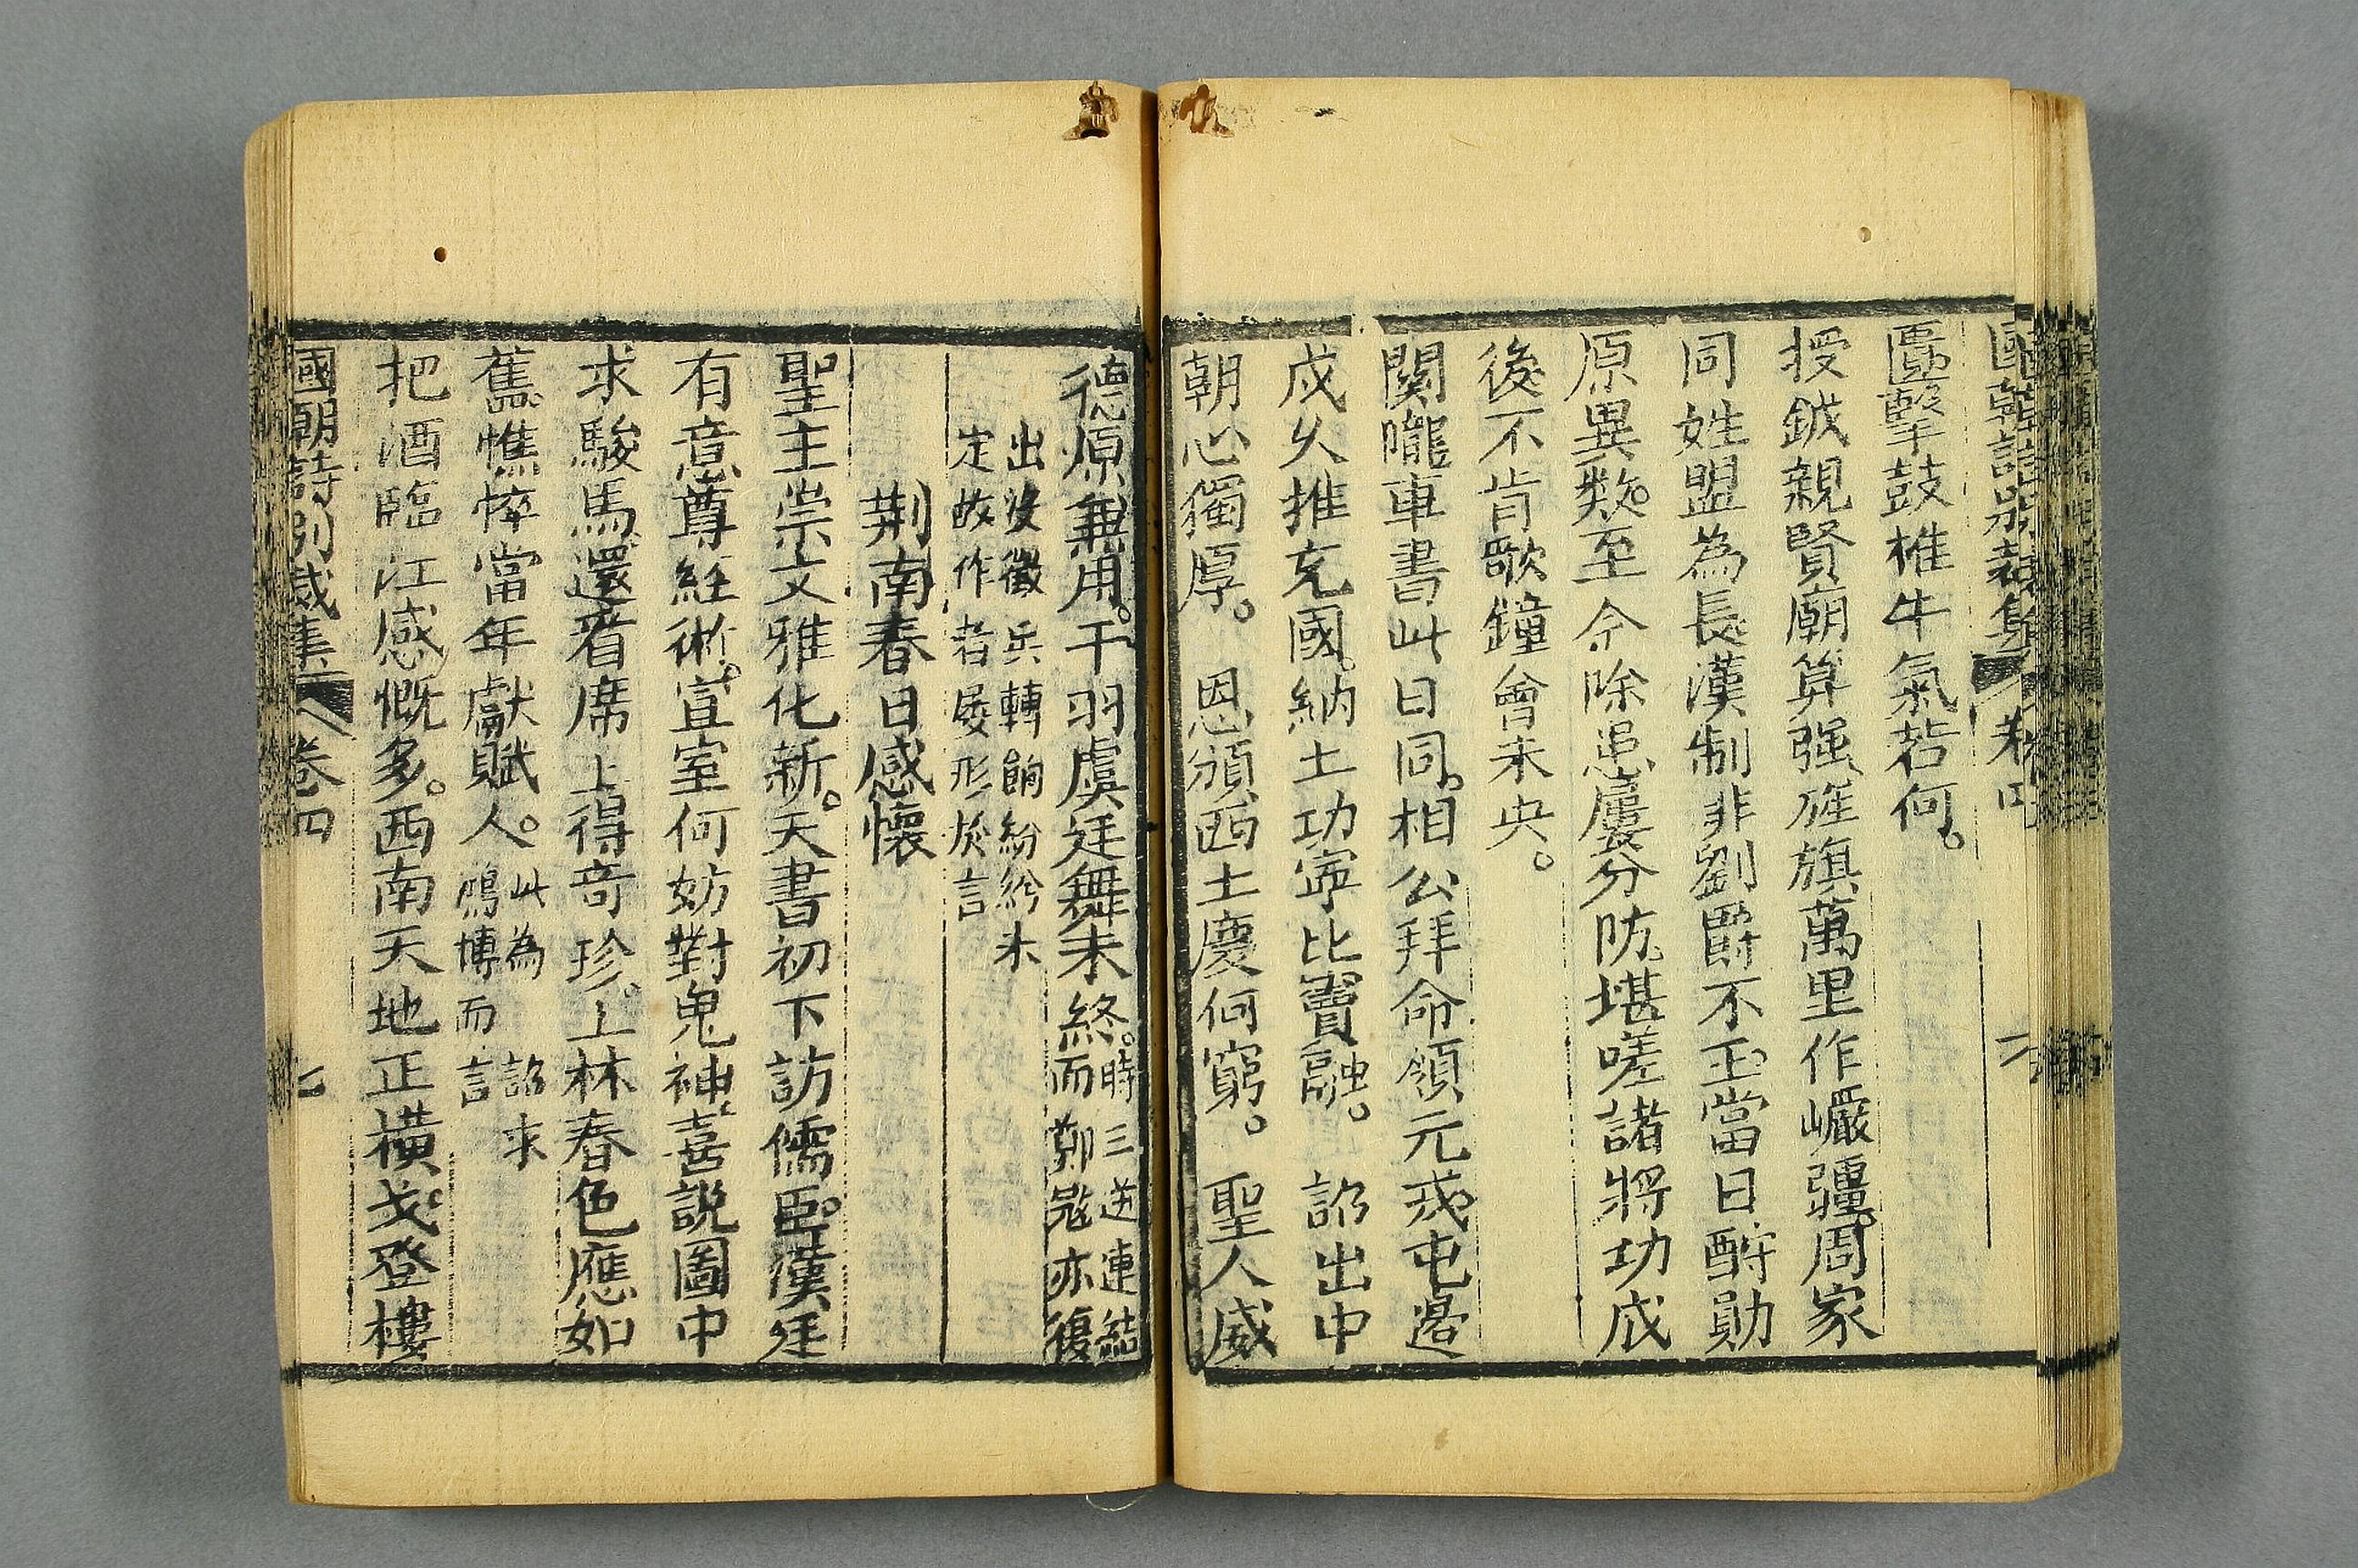 國朝詩別裁集 卷四
匵擊鼓椎牛氣若何。
授鉞親賢廟算强旌旗萬里作巖疆。周家
同姓盟為長漢制非劉爵不王當日酧勛
原異數。至今除患屢分防堪嗟諸將功成
後不肯歌鐘會未央。
関隴車書此日同。相公拜命領元戎屯邉
戍久推充國。納土功寧比竇融。 詔出中
朝心獨厚。 恩頒西土慶何窮。 聖人威
德原兼用。干羽虞廷舞未終。時三逆連結
而鄭冦亦復
出沒徵兵轉餉紛紛未
定故作者屡形於言
荆南春日感懷
聖主崇文雅化新。天書初下訪儒臣。漢廷
有意尊經術。宣室何妨對鬼神。喜説圖中
求駿馬還看席上得竒珍。上林春色應如
舊憔悴當年獻賦人。此為 詔求
鴻博而言
把酒臨江感慨多。西南天地正橫戈登樓
國朝詩別裁集 卷四